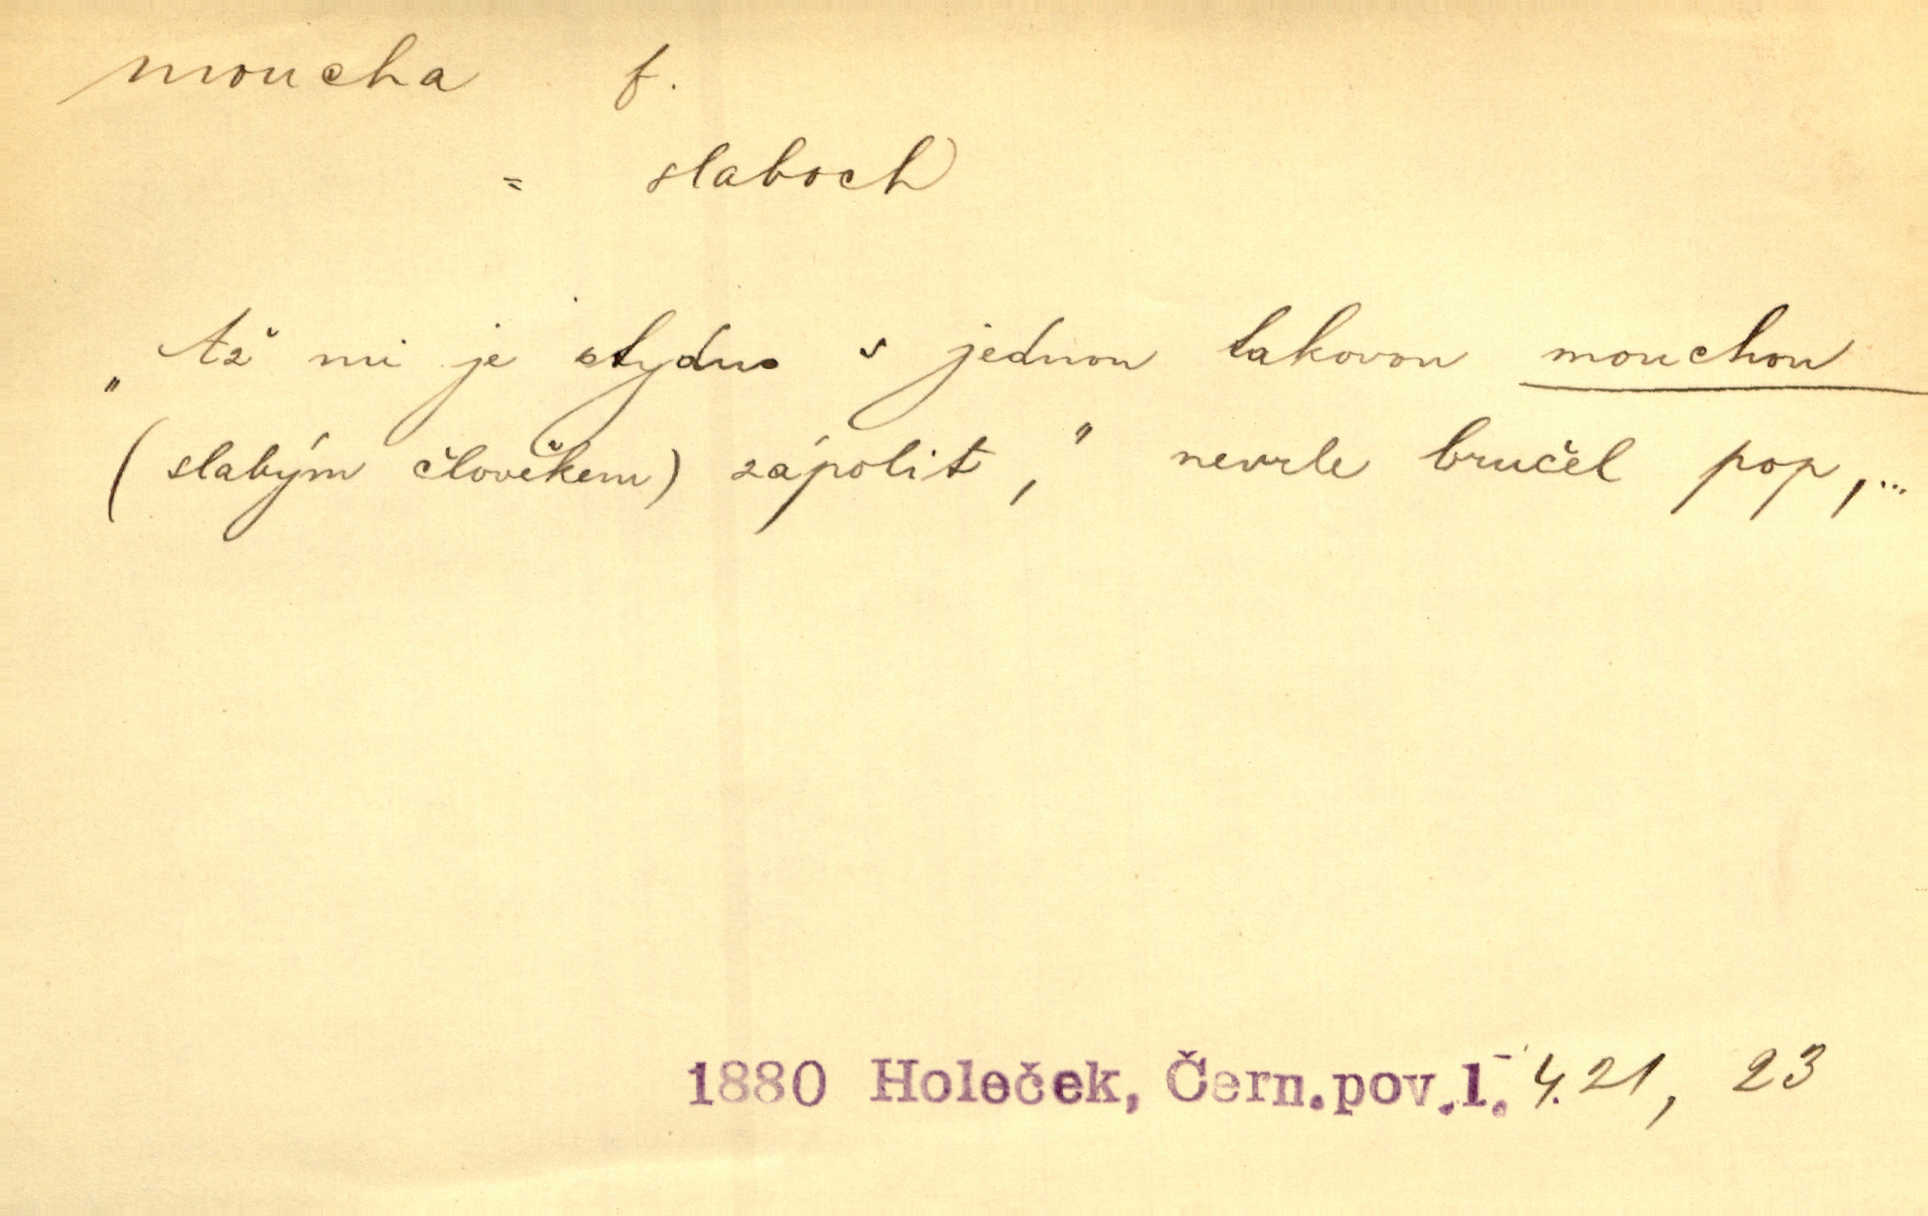 moucha f.
= slaboch
„Až mi je stydno s jednou takovou mouchou
(slabým člověkem) zápolit," nevrle bručel pop,...
1880 Holeček, Čern.pov.1. 4.21, 23